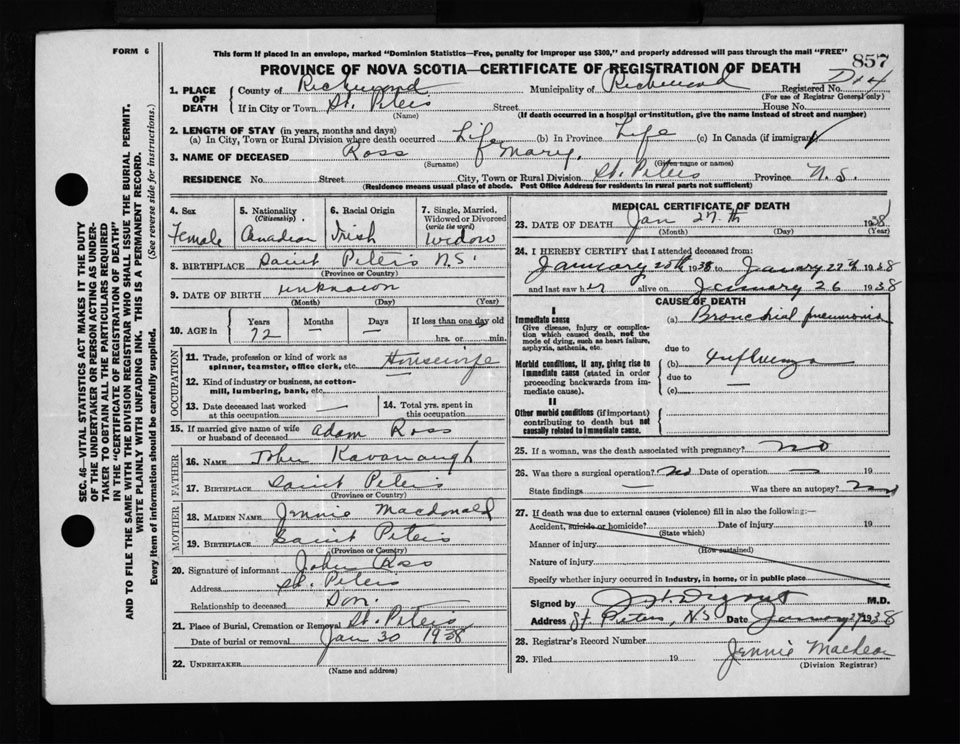 FORM 6
This form if placed in an envelope, marked "Dominion Statistics—Free, penalty for improper use $300," and properly addressed will pass through the mail "FREE"
857
PROVINCE OF NOVA SCOTIA—CERTIFICATE OF REGISTRATION OF DEATH
1. PLACE OF DEATH County of Richmond Municipality of Richmond Registered No.
(For use of Registrar General only)
If in City or Town St. Peters Street House No.
(Name) (If death occurred in a hospital or institution, give the name instead of street and number)
2. LENGTH OF STAY (in years, months and days)
(a) In City, Town or Rural Division where death occurred Life (b) In Province Life (c) In Canada (if immigrant)
3. NAME OF DECEASED Ross Mary.
(Surname) (Given name or names)
RESIDENCE No. Street City, Town or Rural Division St. Peters Province N.S.
(Residence means usual place of abode. Post Office Address for residents in rural parts not sufficient)
4. Sex Female
5. Nationality (Citizenship) Canadian
6. Racial Origin Irish
7. Single, Married, Widowed or Divorced (write the word) Widow
8. BIRTHPLACE Saint Peters N.S.
(Province or Country)
9. DATE OF BIRTH unknown
(Month) (Day) (Year)
10. AGE in Years Months Days If less than one day old
72 — — hrs. or min.
OCCUPATION
11. Trade, profession or kind of work as spinner, teamster, office clerk, etc. Housewife
12. Kind of industry or business, as cotton-mill, lumbering, bank, etc. —
13. Date deceased last worked at this occupation —
14. Total yrs. spent in this occupation
15. If married give name of wife or husband of deceased Adam Ross
FATHER
16. NAME John Kavanaugh
17. BIRTHPLACE Saint Peters
(Province or Country)
MOTHER
18. MAIDEN NAME Jennie Macdonald
19. BIRTHPLACE Saint Peters
(Province or Country)
20. Signature of informant John Ross
Address St. Peters
Relationship to deceased Son.
21. Place of Burial, Cremation or Removal St. Peters
Date of burial or removal Jan 30 1938
22. UNDERTAKER
(Name and address)
MEDICAL CERTIFICATE OF DEATH
23. DATE OF DEATH Jan 27th 1938
(Month) (Day) (Year)
24. I HEREBY CERTIFY that I attended deceased from:
January 20th 1938 to January 27th 1938
and last saw her alive on January 26 1938
CAUSE OF DEATH
I
Immediate cause (a) Bronchial pneumonia
Give disease, injury or complication which caused death, not the mode of dying, such as heart failure, asphyxia, asthenia, etc.
due to
Morbid conditions, if any, giving rise to immediate cause (stated in order proceeding backwards from immediate cause).
(b) Influenza
due to
(c) —
II
Other morbid conditions (if important) contributing to death but not causally related to immediate cause.
25. If a woman, was the death associated with pregnancy? no
26. Was there a surgical operation? no Date of operation — 19
State findings — Was there an autopsy?
27. If death was due to external causes (violence) fill in also the following:—
Accident, suicide or homicide? Date of injury 19
(State which)
Manner of injury
(How sustained)
Nature of injury
Specify whether injury occurred in industry, in home, or in public place
Signed by M.D.
Address St. Peters, N.S Date January 1938
28. Registrar's Record Number
29. Filed 19 Jennie Maclean
(Division Registrar)
SEC. 46—VITAL STATISTICS ACT MAKES IT THE DUTY
OF THE UNDERTAKER OR PERSON ACTING AS UNDER-
TAKER TO OBTAIN ALL THE PARTICULARS REQUIRED
IN THE "CERTIFICATE OF REGISTRATION OF DEATH"
AND TO FILE THE SAME WITH THE DIVISION REGISTRAR WHO SHALL ISSUE THE BURIAL PERMIT.
WRITE PLAINLY WITH UNFADING INK. THIS IS A PERMANENT RECORD.
Every item of information should be carefully supplied. (See reverse side for instructions.)